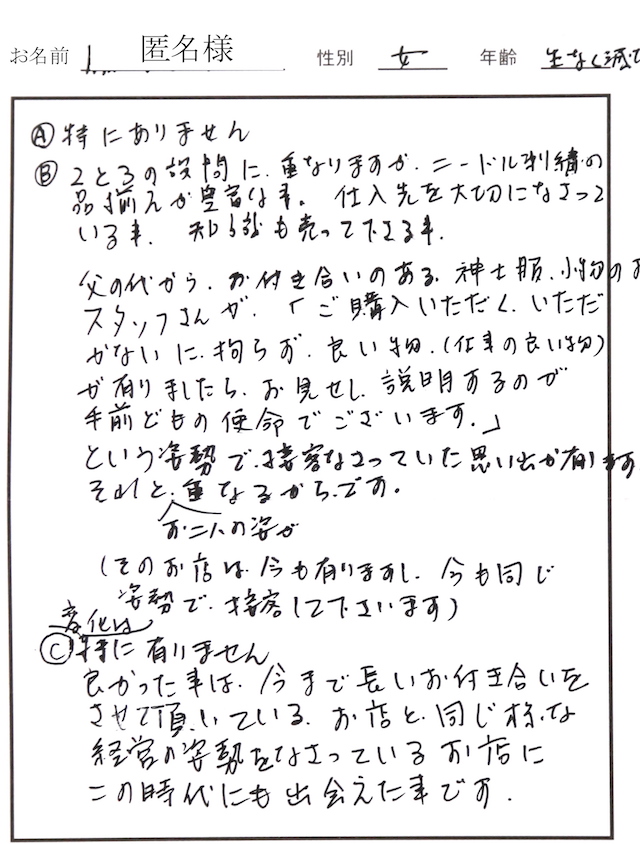 お名前 匿名様 性別 女 年齢
Ⓐ 特にありません
Ⓑ 2と3の設問に、重なりますが、ニードル刺繍の
品揃えが豊富な事。仕入先を大切になさって
いる事。知識も売って下さる事。
父の代から、お付き合いのある、紳士服、小物のお
スタッフさんが、「ご購入いただく、いただ
かないに、拘らず、良い物、(仕事の良い物)
が有りましたら、お見せし、説明するのが
手前どもの使命でございます。」
という姿勢で、接客なさっていた思い出が有ります
それと、重なるからです。
お二人の姿が
(そのお店は、今も有りますし、今も同じ
姿勢で、接客して下さいます)
変化は
Ⓒ 特に有りません
良かった事は、今まで長いお付き合いを
させて頂いている、お店と、同じ様な
経営の姿勢をなさっているお店に
この時代にも出会えた事です。